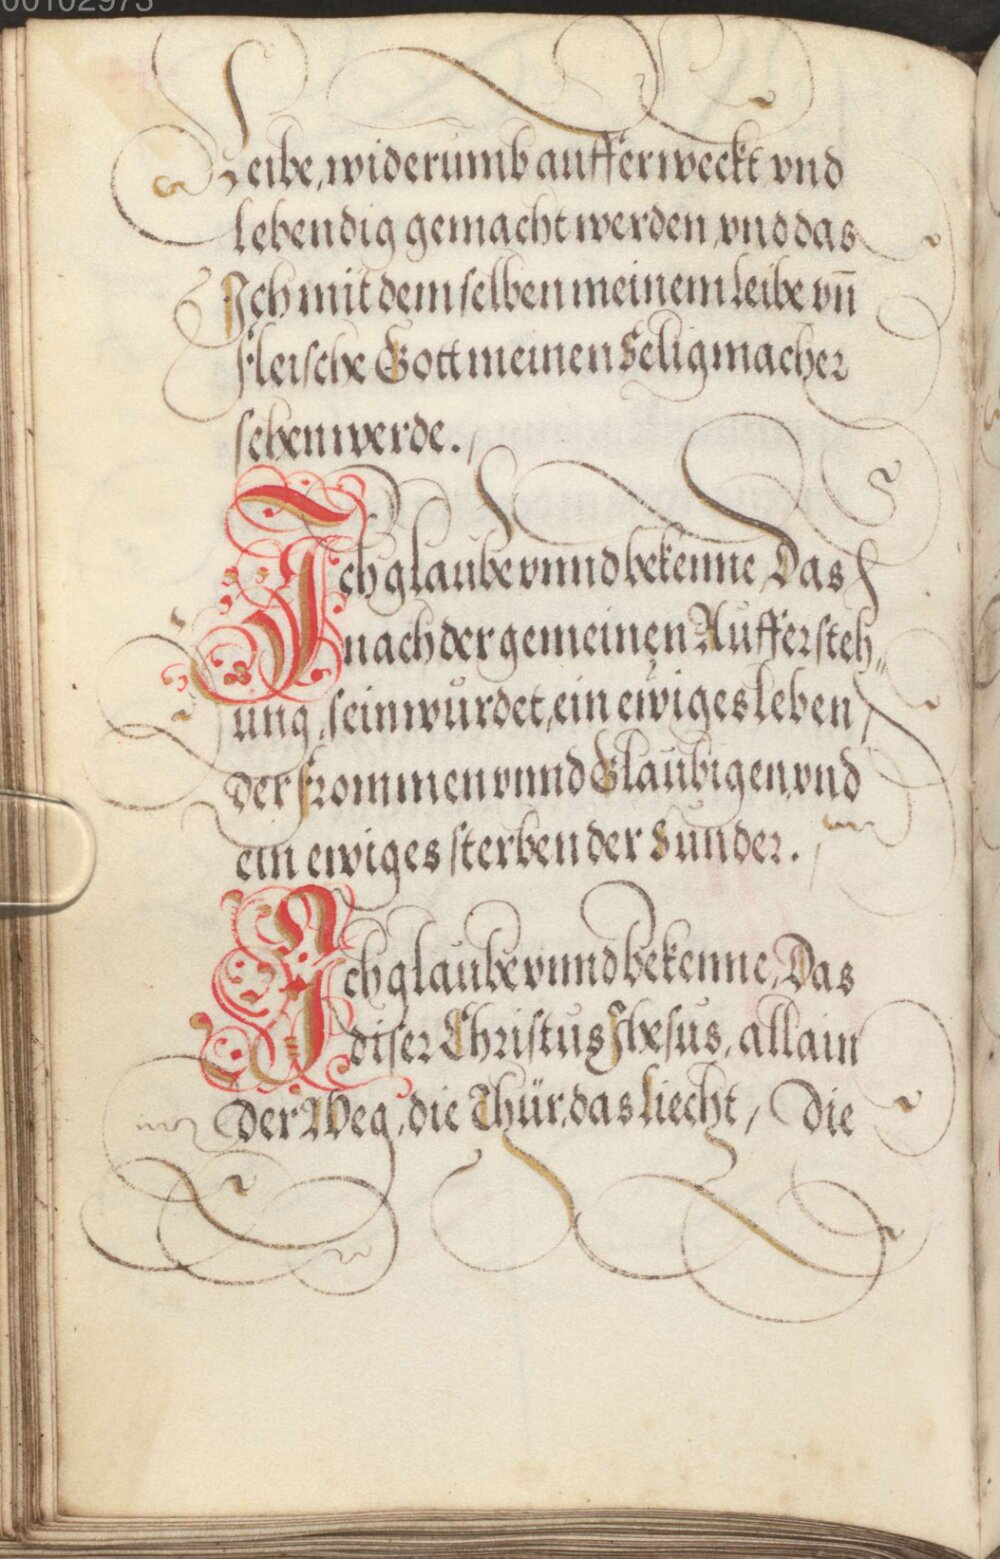 00102973
Leibe, widerumb aufferweckt vnd
lebendig gemacht werden, vnd das
Ich mit demselben meinem leibe vn̄
fleische Gott meinen Seligmacher
sehen werde.
Ich glaube vnnd bekenne, Das
nach der gemeinen Auffersteh„
ung, sein würdet, ein ewiges leben,
der frommen vnnd Glaubigen, vnd
ein ewiges sterben der Sunder.
Ich glaube vnnd bekenne, Das
diser Christus Jhesus, allain
der Weg, die Thür, das liecht, Die